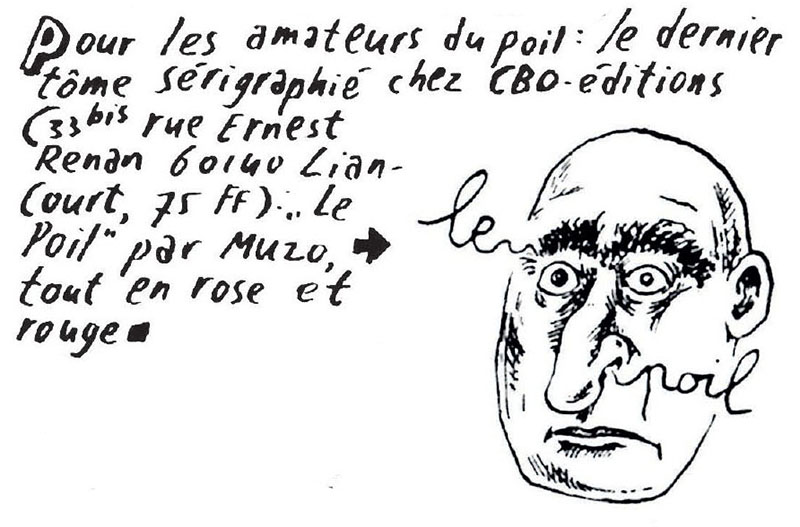 Pour les amateurs du poil : le dernier
tôme sérigraphié chez CBO-éditions
(33bis rue Ernest
Renan 60140 Lian-
court, 75 FF) : „Le
Poil" par Muzo,
tout en rose et
rouge
le
poil